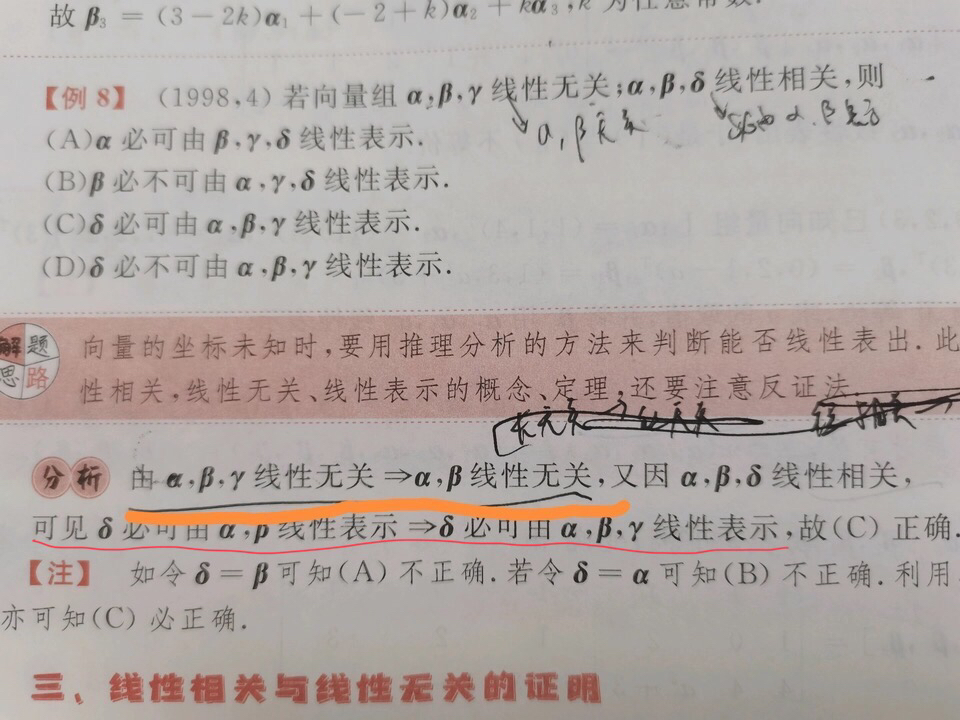 故 β₃ = (3-2k)α₁ + (-2+k)α₂ + kα₃, k 为任意常数.
【例 8】 (1998,4) 若向量组 α,β,γ 线性无关;α,β,δ 线性相关,则
α,β无关
(A)α 必可由 β,γ,δ 线性表示.
(B)β 必不可由 α,γ,δ 线性表示.
(C)δ 必可由 α,β,γ 线性表示.
(D)δ 必不可由 α,β,γ 线性表示.
解题
思路
向量的坐标未知时,要用推理分析的方法来判断能否线性表出.此
性相关,线性无关、线性表示的概念、定理,还要注意反证法.
分析 由 α,β,γ 线性无关 ⇒α,β 线性无关,又因 α,β,δ 线性相关,
可见 δ 必可由 α,β 线性表示 ⇒δ 必可由 α,β,γ 线性表示,故(C) 正确.
【注】 如令 δ=β 可知(A) 不正确.若令 δ=α 可知(B) 不正确.利用
亦可知(C) 必正确.
三、线性相关与线性无关的证明